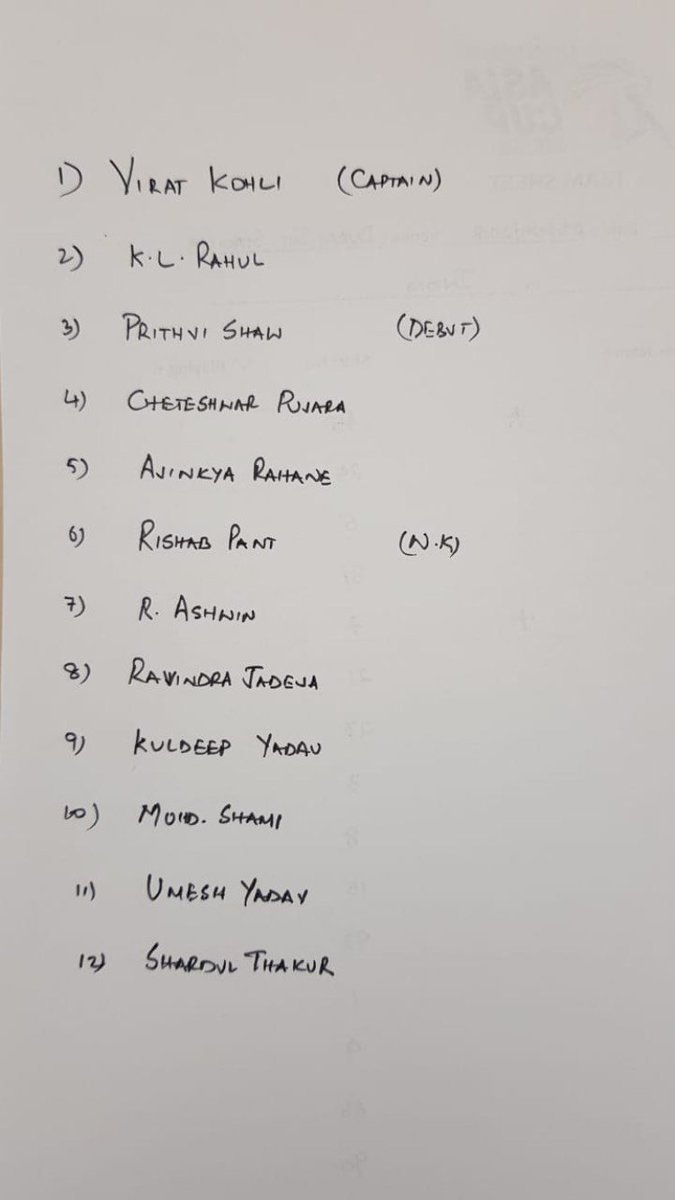 1) VIRAT KOHLI (CAPTAIN)
2) K.L. RAHUL
3) PRITHVI SHAW (DEBUT)
4) CHETESHWAR PUJARA
5) AJINKYA RAHANE
6) RISHAB PANT (W.K)
7) R. ASHWIN
8) RAVINDRA JADEJA
9) KULDEEP YADAV
10) MOHD. SHAMI
11) UMESH YADAV
12) SHARDUL THAKUR